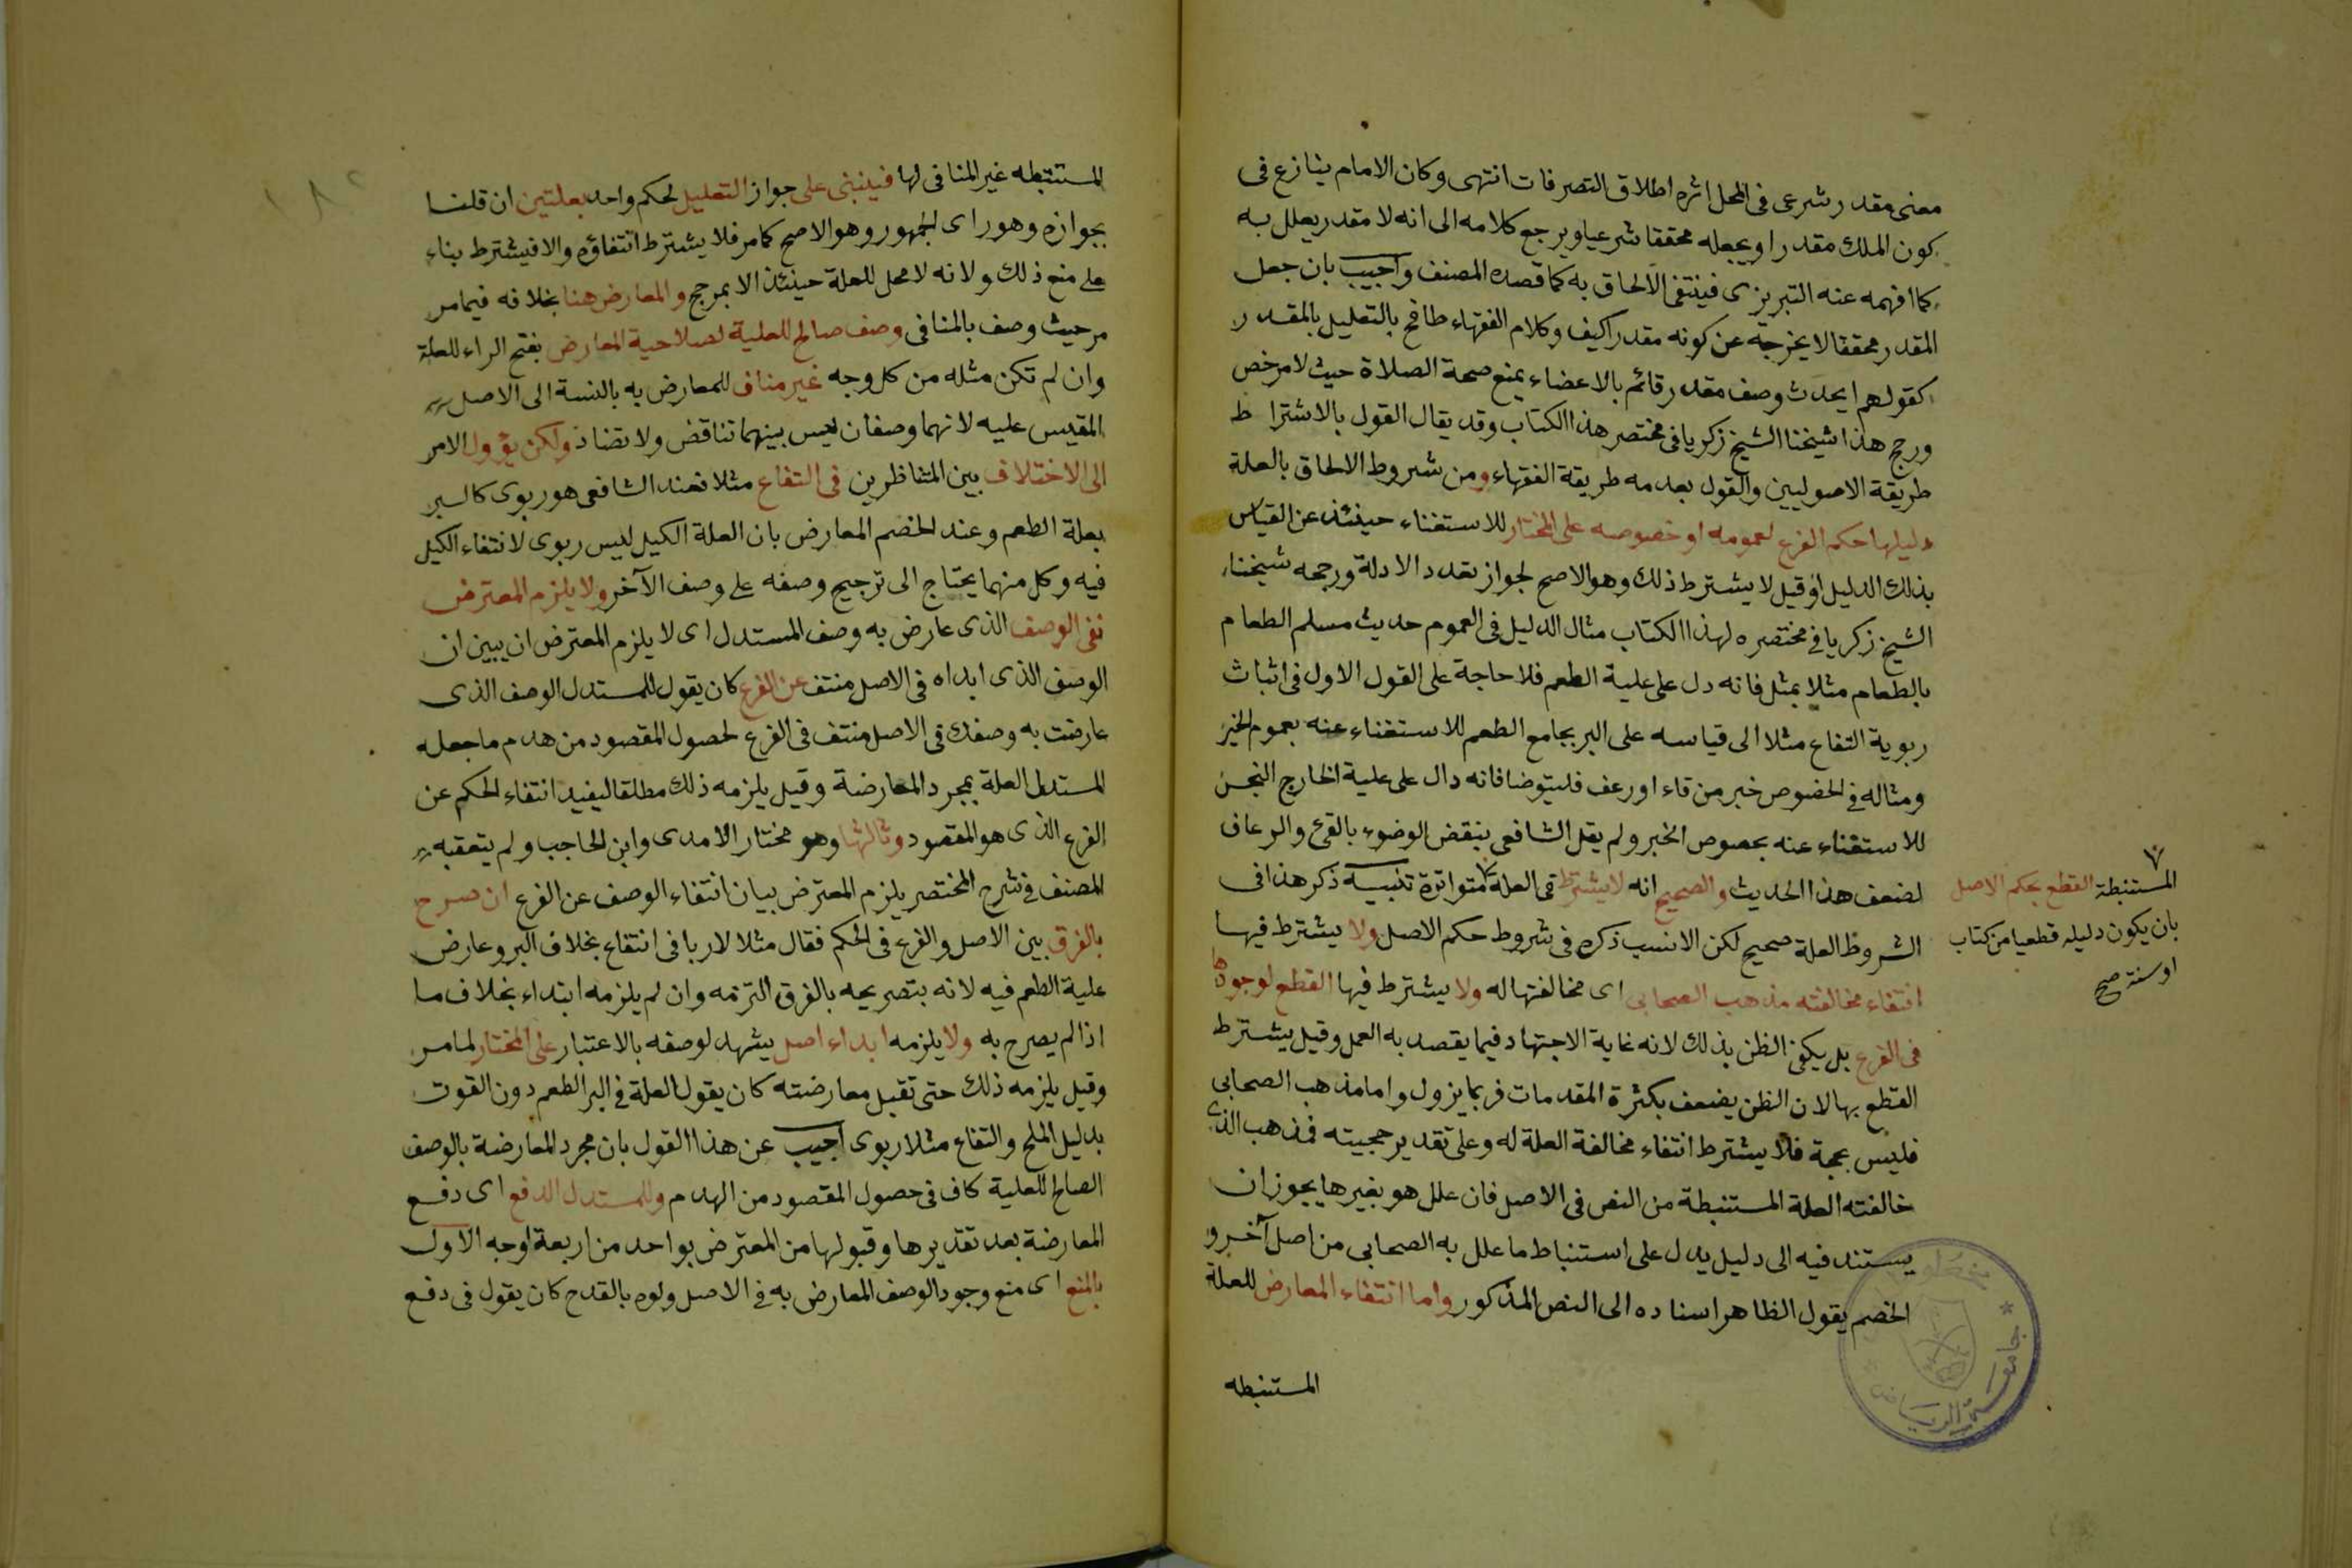 معنى مقدر شرعى فى المحل اثره اطلاق التصرفات انتهى وكان الامام ينازع فى
كون الملك مقدرا ويجعله محققا شرعيا ويرجع كلامه الى انه لا مقدر يعلل به
كما افهمه عنه التبريزى فينتفى الالحاق به كما قصده المصنف واجيب بان جعل
المقدر محققا لا يخرجه عن كونه مقدرا كيف وكلام الفقهاء طافح بالتعليل بالمقدر
كقولهم الحدث وصف مقدر قائم بالاعضاء يمنع صحة الصلاة حيث لا مرخص
ورجح هذا شيخنا الشيخ زكريا فى مختصر هذا الكتاب وقد يقال القول بالاشتراط
طريقة الاصوليين والقول بعدمه طريقة الفقهاء ومن شروط الالحاق بالعلة
دليلها حكم الفرع لعمومه او خصوصه على المختار للاستغناء حينئذ عن القياس
بذلك الدليل او قيل لا يشترط ذلك وهو الاصح لجواز تعدد الادلة ورجحه شيخنا
الشيخ زكريا فى مختصره لهذا الكتاب مثال الدليل فى العموم حديث مسلم الطعام
بالطعام مثلا بمثل فانه دل على علية الطعم فلا حاجة على القول الاول فى اثبات
ربوية التفاح مثلا الى قياسه على البر بجامع الطعم للاستغناء عنه بعموم الخبر
ومثاله فى الخصوص خبر من قاء او رعف فليتوضا فانه دال على علية الخارج النجس
للاستغناء عنه بخصوص الخبر ولم يقل الشافعى بنقض الوضوء بالقئ والرعاف
لضعف هذا الحديث والصحيح انه لا يشترط فى العلة متواترة تنبيه ذكر هذا فى
الشروط العلة صحيح لكن الانسب ذكره فى شروط حكم الاصل ولا يشترط فيها
انتفاء مخالفته مذهب الصحابى اى مخالفتها له ولا يشترط فيها القطع لوجودها
فى الفرع بل يكفى الظن بذلك لانه غاية الاجتهاد فيما يقصد به العمل وقيل يشترط
القطع بها لان الظن يضعف بكثرة المقدمات فربما يزول واما مذهب الصحابى
فليس بحجة فلا يشترط انتفاء مخالفة العلة له وعلى تقدير حجيته فمذهب الذى
خالفته العلة المستنبطة من النص فى الاصل فان علل هو بغيرها يجوز ان
يستند فيه الى دليل يدل على استنباط ما علل به الصحابى من اصل آخر و
الخصم يقول الظاهر اسناده الى النص المذكور واما انتفاء المعارض للعلة
المستنبطه
المستنبطة القطع بحكم الاصل
بان يكون دليله قطعيا من كتاب
او سنة صح
المستنبطه غير المنافى لها فينبنى على جواز التعليل لحكم واحد بعلتين ان قلنا
بجوازه وهو راى الجمهور وهو الاصح كما مر فلا يشترط انتفاؤه والا فيشترط بناء
على منع ذلك ولانه لا محل للعلة حينئذ الا بمرجح والمعارض هنا بخلافه فيما مر
من حيث وصف بالمنافى وصف صالح للعلية لصلاحية المعارض بفتح الراء للعلة
وان لم تكن مثله من كل وجه غير مناف للمعارض به بالنسبة الى الاصل
المقيس عليه لانهما وصفان ليس بينهما تناقض ولا تضاد ولكن يؤول الامر
الى الاختلاف بين المتناظرين فى التفاح مثلا فعند الشافعى هو ربوى كالبر
بعلة الطعم وعند الخصم المعارض بان العلة الكيل ليس ربوى لانتفاء الكيل
فيه وكل منهما يحتاج الى ترجيح وصفه على وصف الآخر ولا يلزم المعترض
نفى الوصف الذى عارض به وصف المستدل اى لا يلزم المعترض ان يبين ان
الوصف الذى ابداه فى الاصل منتف عن الفرع كان يقول للمستدل الوصف الذى
عارضت به وصفك فى الاصل منتف فى الفرع لحصول المقصود من هدم ما جعله
المستدل العلة بمجرد المعارضة وقيل يلزمه ذلك مطلقا ليفيد انتفاء الحكم عن
الفرع الذى هو المقصود وثالثها وهو مختار الامدى وابن الحاجب ولم يتعقبه
المصنف فى شرح المختصر يلزم المعترض بيان انتفاء الوصف عن الفرع ان صرح
بالفرق بين الاصل والفرع فى الحكم فقال مثلا لا ربا فى انتفاع بخلاف البر وعارض
علية الطعم فيه لانه بتصريحه بالفرق التزمه وان لم يلزمه ابتداء بخلاف ما
اذا لم يصرح به ولا يلزمه ابداء اصل يشهد لوصفه بالاعتبار على المختار لما مر
وقيل يلزمه ذلك حتى تقبل معارضته كان يقول العلة فى البر الطعم دون القوت
بدليل الملح والتفاح مثلا ربوى اجيب عن هذا القول بان مجرد المعارضة بالوصف
الصالح للعلية كاف فى حصول المقصود من الهدم وللمستدل الدفع اى دفع
المعارضة بعد تقديرها وقبولها من المعترض بواحد من اربعة اوجه الاول
بالمنع اى منع وجود الوصف المعارض به فى الاصل ولوه بالقدح كان يقول فى دفع